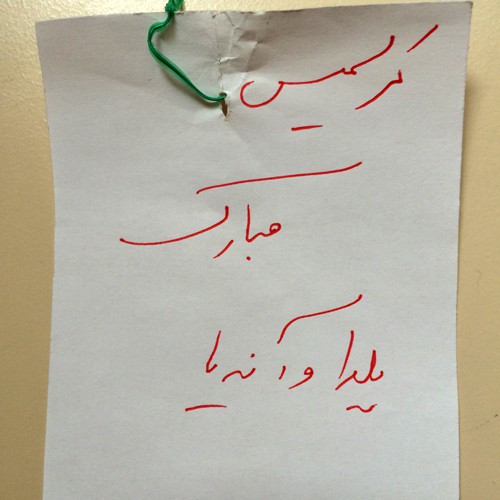 کریسمس
مبارک
یلدا و آنه یا